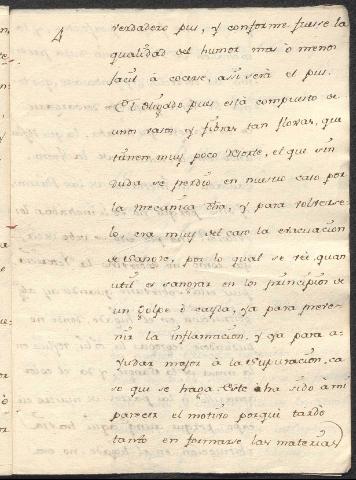 4
verdadero pus, y conforme fuesse la
qualidad del humor mas ò menos
facil à cocerse, assi serà el pus.
El pus está compuesto de
unos vasos, y fibras tan floxas, que
tienen muy poco el que sin
duda se perdiò en nuestro caso por
la mecanica dha, y para volverse-
le, era muy del caso la evacuacion
de Sangre, por lo qual se vee quan
util es sangrar en los principios de
un golpe ò cayda, ya para preve-
nir la inflamacion, y ya para a-
yudar mejor à la Supuracion, ca-
so que se haga. Este ha sido à mi
parecer el motivo porque tardò
tanto en formarse las materias